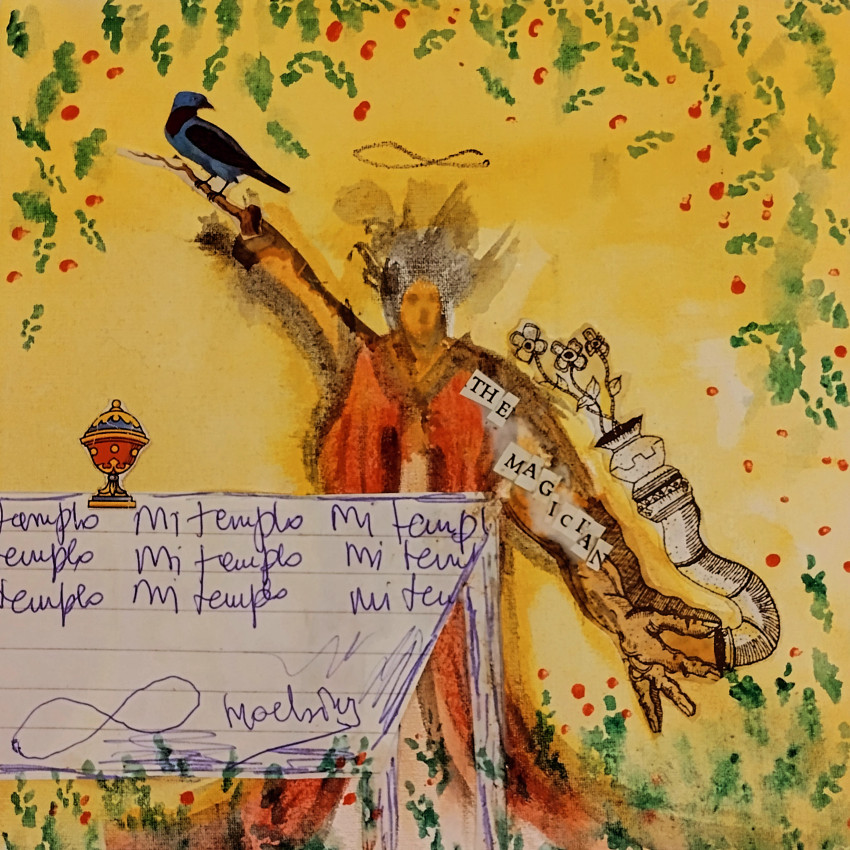 THE
MAGICIAN
templo Mi templo Mi templ
templo Mi templo Mi tem
templo Mi templo Mi tem